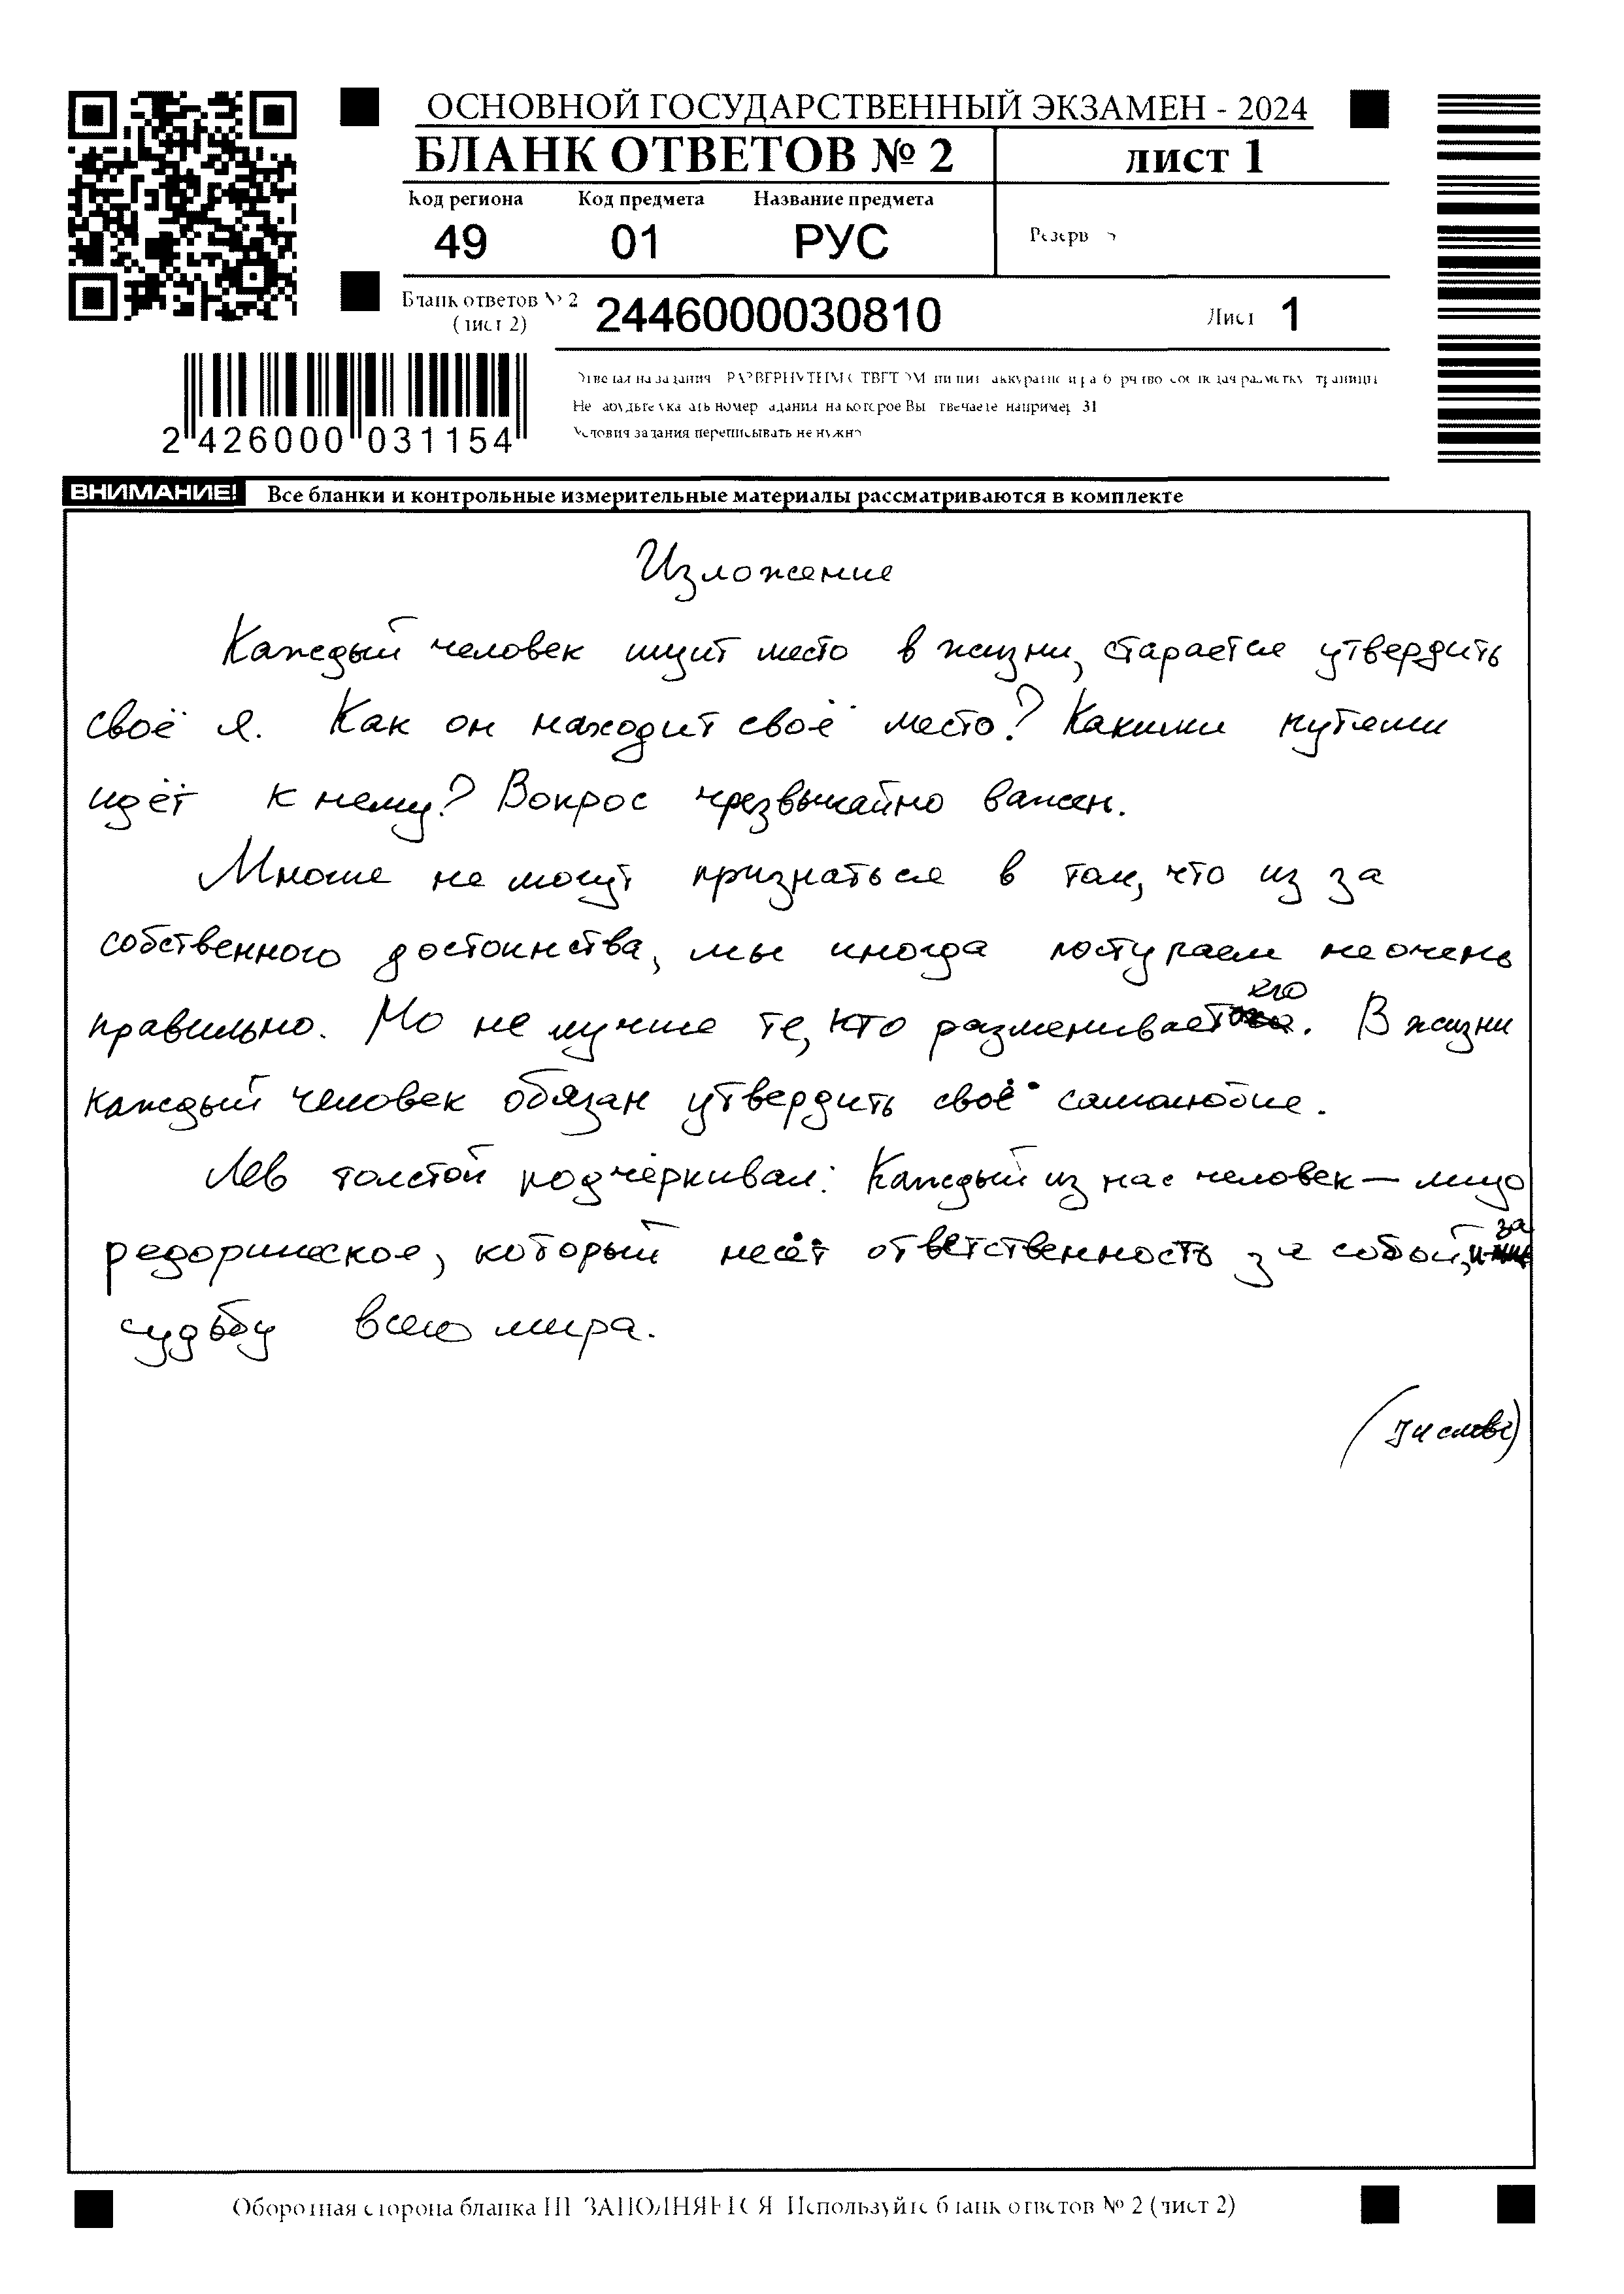 ОСНОВНОЙ ГОСУДАРСТВЕННЫЙ ЭКЗАМЕН - 2024
БЛАНК ОТВЕТОВ № 2
лист 1
Код региона Код предмета Название предмета
49 01 РУС
Резерв
Бланк ответов № 2 (лист 2) 2446000030810
Лист 1
2 426000 031154
Условия задания переписывать не нужно
ВНИМАНИЕ! Все бланки и контрольные измерительные материалы рассматриваются в комплекте
Изложение
Каждый человек ищит место в жизни, старается утвердить
своё я. Как он находит своё место? Какими путями
идёт к нему? Вопрос чрезвычайно важен.
Многие не могут признаться в том, что из за
собственного достоинства, мы иногда поступаем не очень
правильно. Но не лучше те, кто разменивает его. В жизни
каждый человек обязан утвердить своё самолюбие.
Лев толстой подчёркивал: Каждый из нас человек — лицо
редорическое, который несёт ответственность за собой, и за
судьбу всего мира.
Оборотная сторона бланка НЕ ЗАПОЛНЯЕТСЯ Используйте бланк ответов № 2 (лист 2)